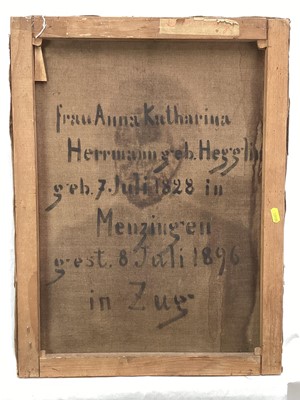 frau Anna Katharina
Herrmann geb. Hegglin
geb. 7. Juli 1828 in
Menzingen
gest. 8 Juli 1896
in Zug